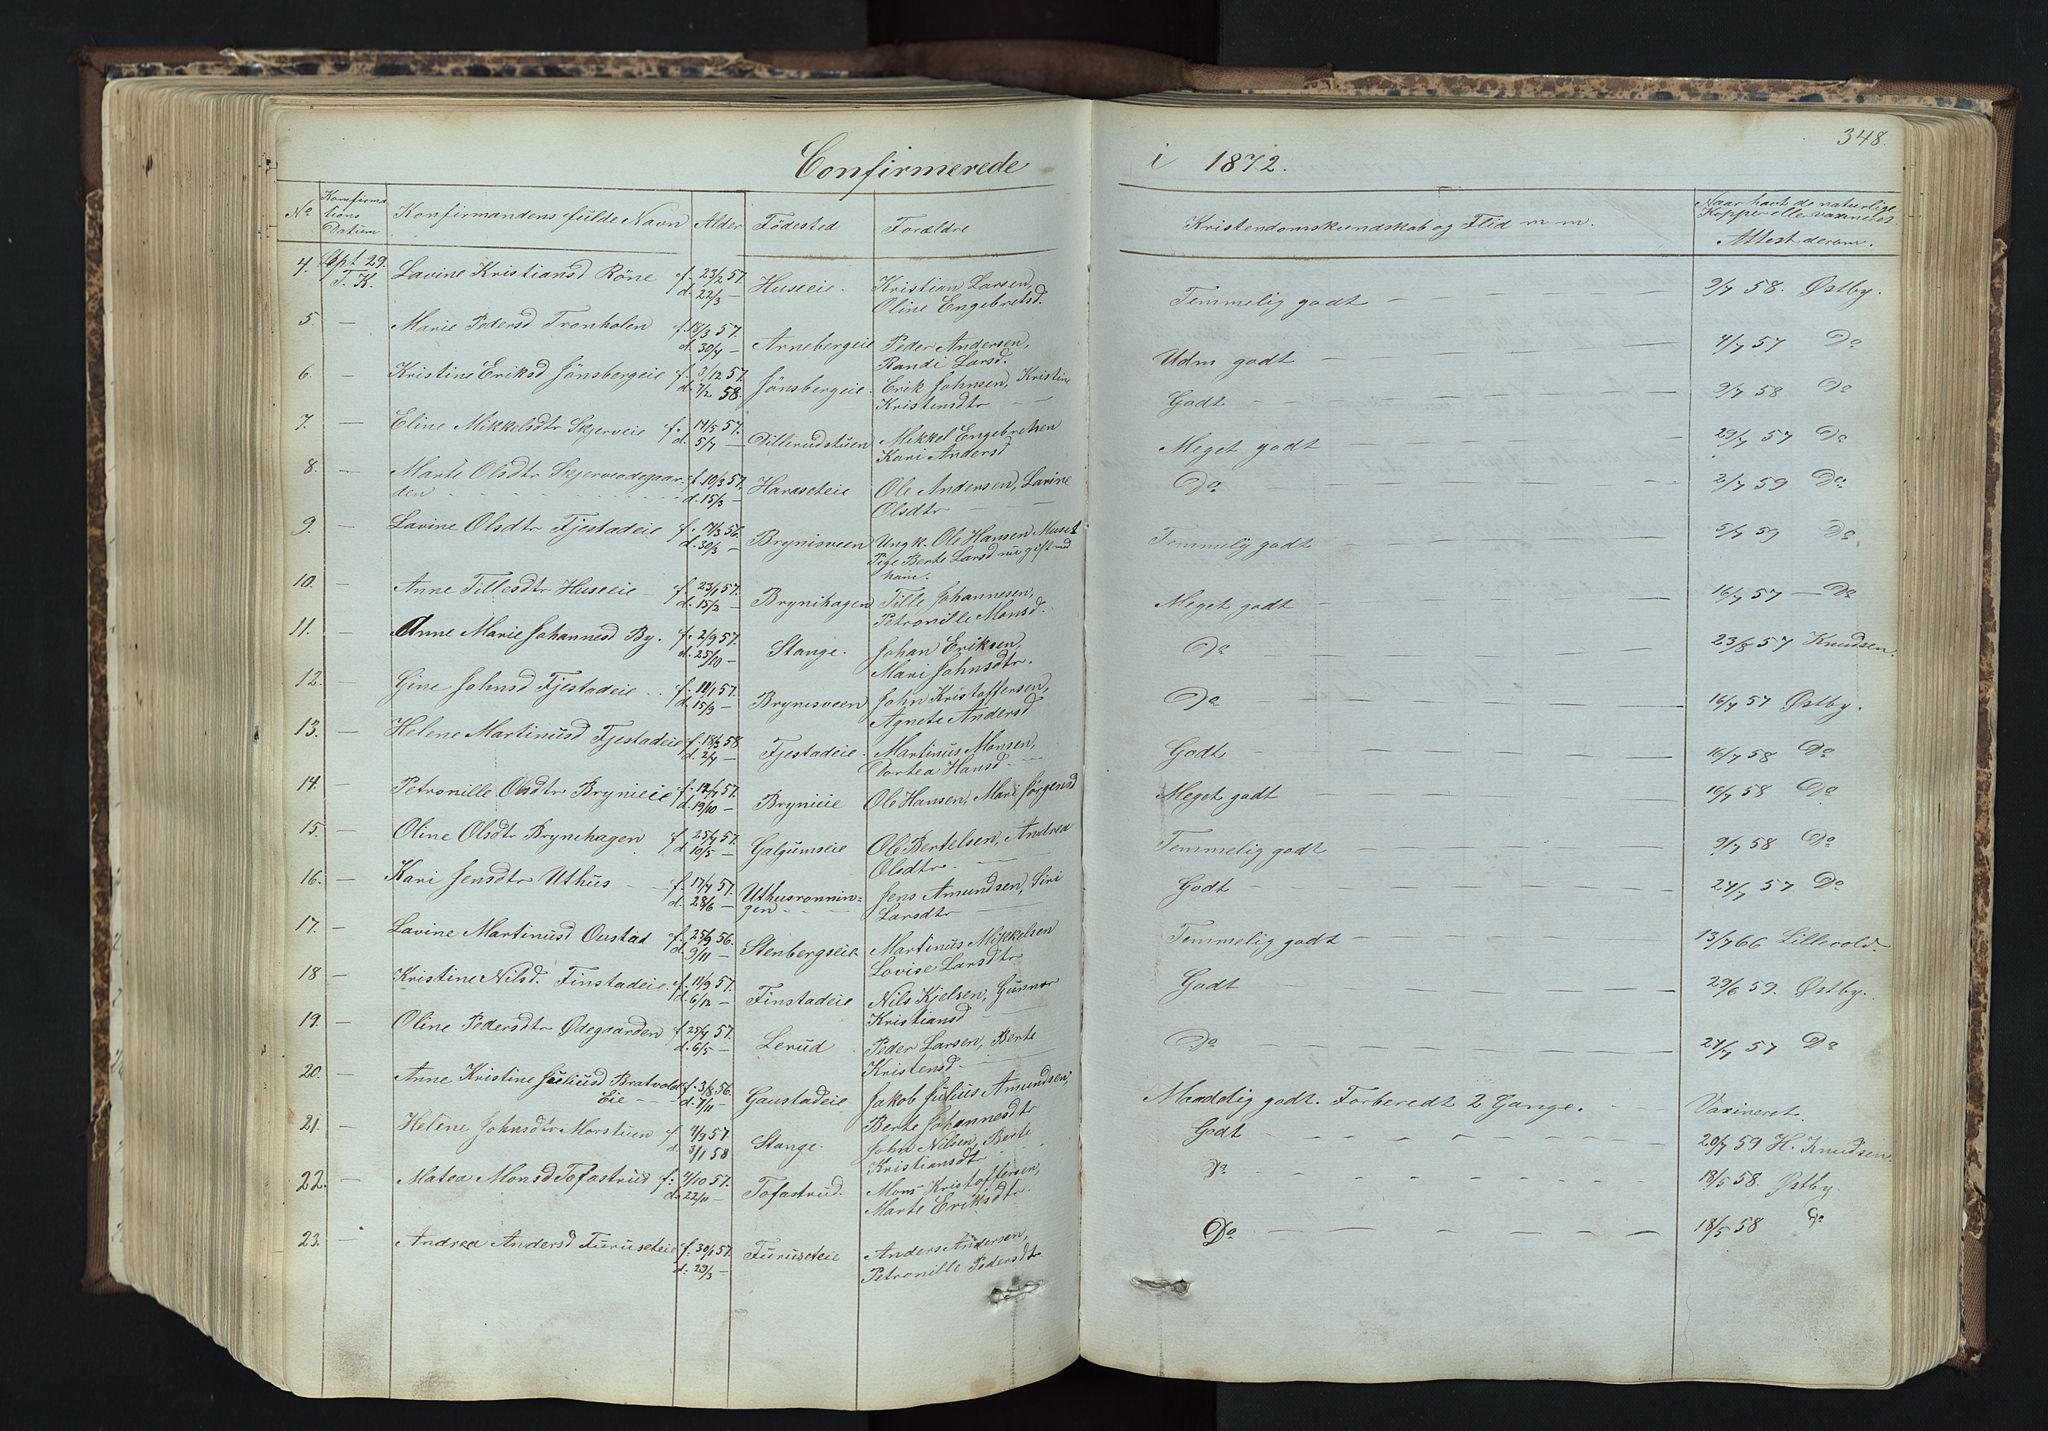 Confirmerede i 1872.
348.
No Konfirmations Datum Konfirmandens fulde Navn Alder Födested Forældre Kristendomskundskab og Flid m m. Naar havt de naturlige Kopper eller vaxineret Attest derom.
4. Spt 29. T. K. Lavine Kristiansd Röne f. 23/2 57. d. 22/3 — Huseeie. Kristian Larsen, Oline Engebretsd. Temmelig godt — 9/7 58. Østby.
5. — Marie Pedersd Tronholen f. 18/3 57. d. 30/4 — Arnebergeie Peder Andersen, Randi Larsd. Udm godt — 4/7 57 Do
6. — Kristine Eriksd Jönsbergeie f. 3/12 57. d. 7/2 58. Jönsbergeie. Erik Johnsen, Kristine Kristensdtr — Godt — 9/7 58 Do
7. — Eline Mikkelsdtr Skjerveie f. 17/5 57. d. 5/7 — Dillerudstuen Mikkel Engebretsen Kari Andersd Meget godt 29/7 57 Do
8. — Marte Olsdtr Skjerveødegaarden f. 10/3 57. d. 15/3 — Haraseteie Ole Andersen, Lavine Olsdtr — Do — 2/7 59 Do
9. — Lavine Olsdtr Fjestadeie f. 17/3 56. d. 30/3 — Brynisveen Ungk. Ole Hansen Pige Berte Larsd nu gift med ham. Temmelig godt — 5/7 59 Do
10. — Anne Tillesdtr Huseeie f. 23/1 57. d. 15/2 — Brynihagen Tille Johannesen, Petronille Monsd. Meget godt — 16/7 57 — Do
11. — Anne Marie Johannesd By. f. 2/9 57. d. 25/10 — Stange. Johan Eriksen, Mari Johnsdtr. Do — 23/8 57 Knudsen.
12. — Gine Johnsd Fjestadeie f. 11/1 57. d. 15/3 — Brynisveen John Kristoffersen, Agnete Andersd Do — 16/7 57 Østby.
13. — Helene Martinusd Fjestadeie f. 18/3 58. d. 2/4 — Fjestadeie. Martinus Monsen, Dortea Hansd — Godt — 16/7 58 Do
14. — Petronille Olsdtr Brynieie f. 12/7 57. d. 19/10 — Brynieie Ole Hansen, Mari Jörgensd Meget godt — 16/7 58 Do
15. — Oline Olsdtr Brynehagen f. 25/4 57. d. 10/5 — Galgumseie Ole Bertelsen, Andrea Olsdtr. — Temmelig godt — 9/7 58 Do
16. — Kari Jensdtr Uthus — f. 17/4 57. d. 28/6 — Uthusrönningen Jens Amundsen, Siri Larsdtr — Godt — 24/7 57 Do
17. — Lavine Martinusd Oustad f. 25/9 56. d. 9/11 — Stenbergseie Martinus Mikkelsen Lovise Larsdtr Temmelig godt — 13/7 66 Lillevold.
18 — Kristine Nilsd. Finstadeie. f. 11/9 57. d. 6/12 — Finstadeie Nils Kjelsen, Gunnor Kristiansd — Godt — 29/6 59. Østby.
19. — Oline Pedersdtr Ødegaarden f. 25/4 57. d. 6/5 — Lerud Peder Larsen, Berte Kristensd. — Do — 24/7 57 Do
20. — Anne Kristine Juliusd Bratvold Eie — f. 3/8 56. d. 7/11 — Gaustadeie Jakob Julius Amundsen, Berte Johannesdtr Maadelig godt. Forberedt 2 Gange. — Vaxineret.
21. — Helene Johnsdtr Morstuen f. 4/9 57. d. 3/1 58 Stange. John Nilsen, Berte Kristiansdtr Godt — 20/7 59 H. Knudsen.
22. — Matea Monsd Tofastrud f. 4/10 57. d. 22/11 — Tofastrud. Mons Kristoffersen, Marte Eriksdtr. Do — 18/5 58. Østby.
23. — Andrea Andersd Furuseteie f. 30/1 57. d. 29/3 — Furuseteie Anders Andersen, Petronille Pedersdtr Do — 18/5 58 Do